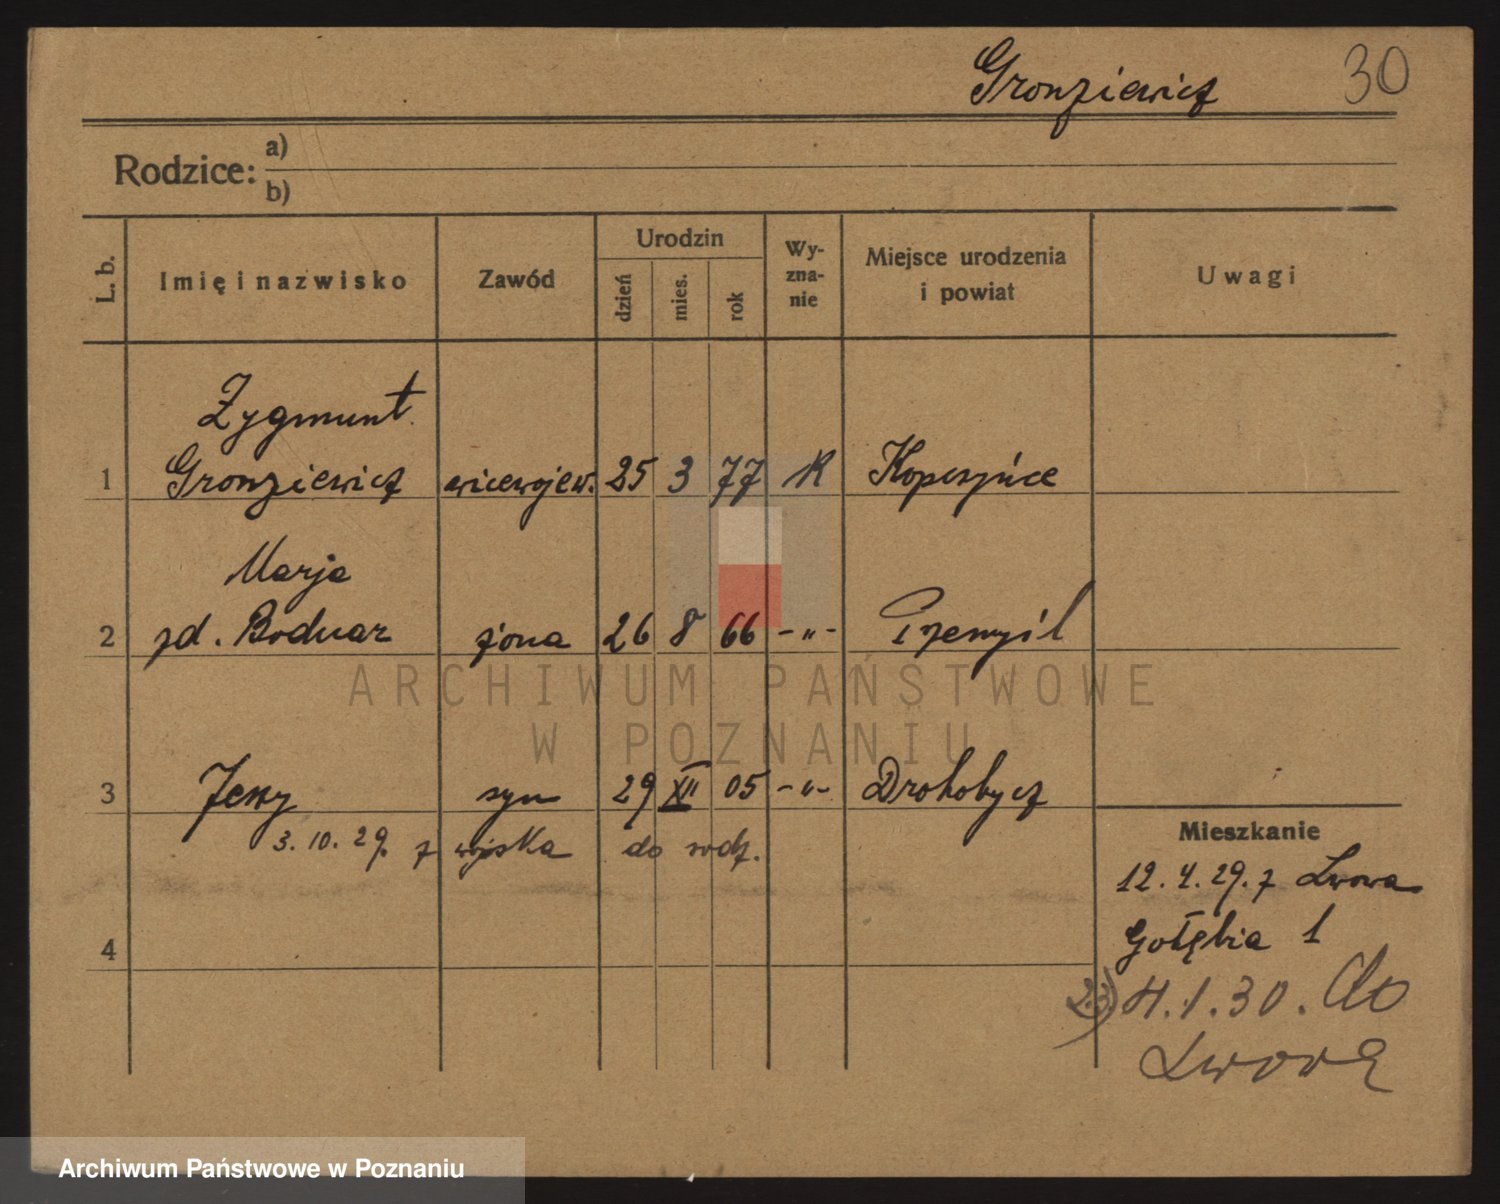 Gronziewicz 30
Rodzice: a)
b)
L. b. Imię i nazwisko Zawód Urodzin dzień mies. rok Wy-zna-nie Miejsce urodzenia i powiat Uwagi
Zygmunt
1 Gronziewicz wicewojew. 25 3 77 R Kopyczyńce
Marja
2 zd. Bodnar żona 26 8 66 -"- Przemyśl
3 Jerzy syn 29 XII 05 -"- Drohobycz
3.10.29. z wojska do rodz.
Mieszkanie
12.4.29. z Lwowa
4 Gołębia 1
4.1.30. do
Lwowa
ARCHIWUM PAŃSTWOWE
W POZNANIU
Archiwum Państwowe w Poznaniu